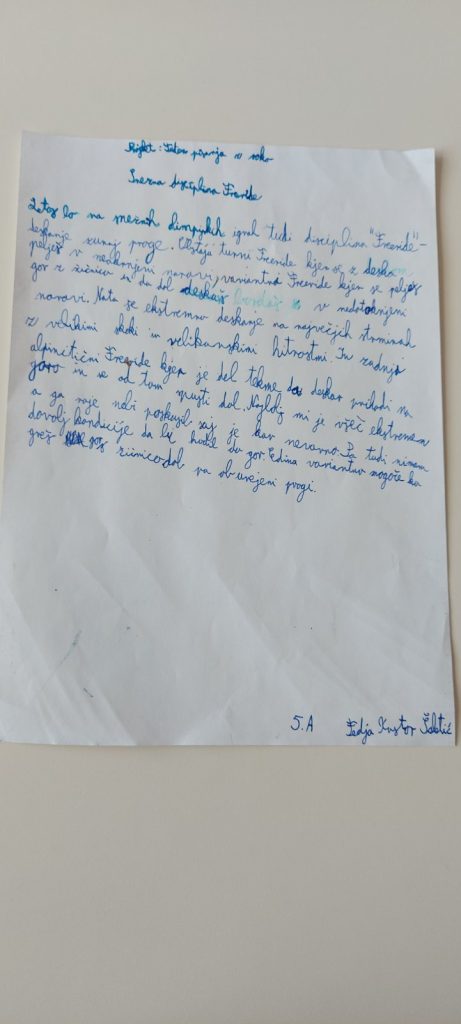 Projekt: Teden pisanja z roko
Snežna disciplina Freeride
Letos bo na snežnih olimpijskih igrah tudi disciplina "Freeride"-
deskanje zunaj proge. Obstaja turni Freeride kjer se z deskam
pelješ v neokrnjeni naravi, variantni Freeride kjer se pelješ
gor z žičnico in da dol deskaš v nedotaknjeni
naravi. Nato je ekstremno deskanje na največjih strminah
z velikimi skoki in velikanskimi hitrostmi. In zadnji
alpinistični Freeride kjer je del tekme da deskar prileze na
goro in se od tam spusti dol. Najbolj mi je všeč ekstremen
a ga raje nebi poskusil saj je kar nevarno. Pa tudi nimam
dovolj kondicije da bi hodil do gor. Edina varianta mogoče ka
greš z žičnico dol pa ob urejeni progi.
5.A Tedja Kustor